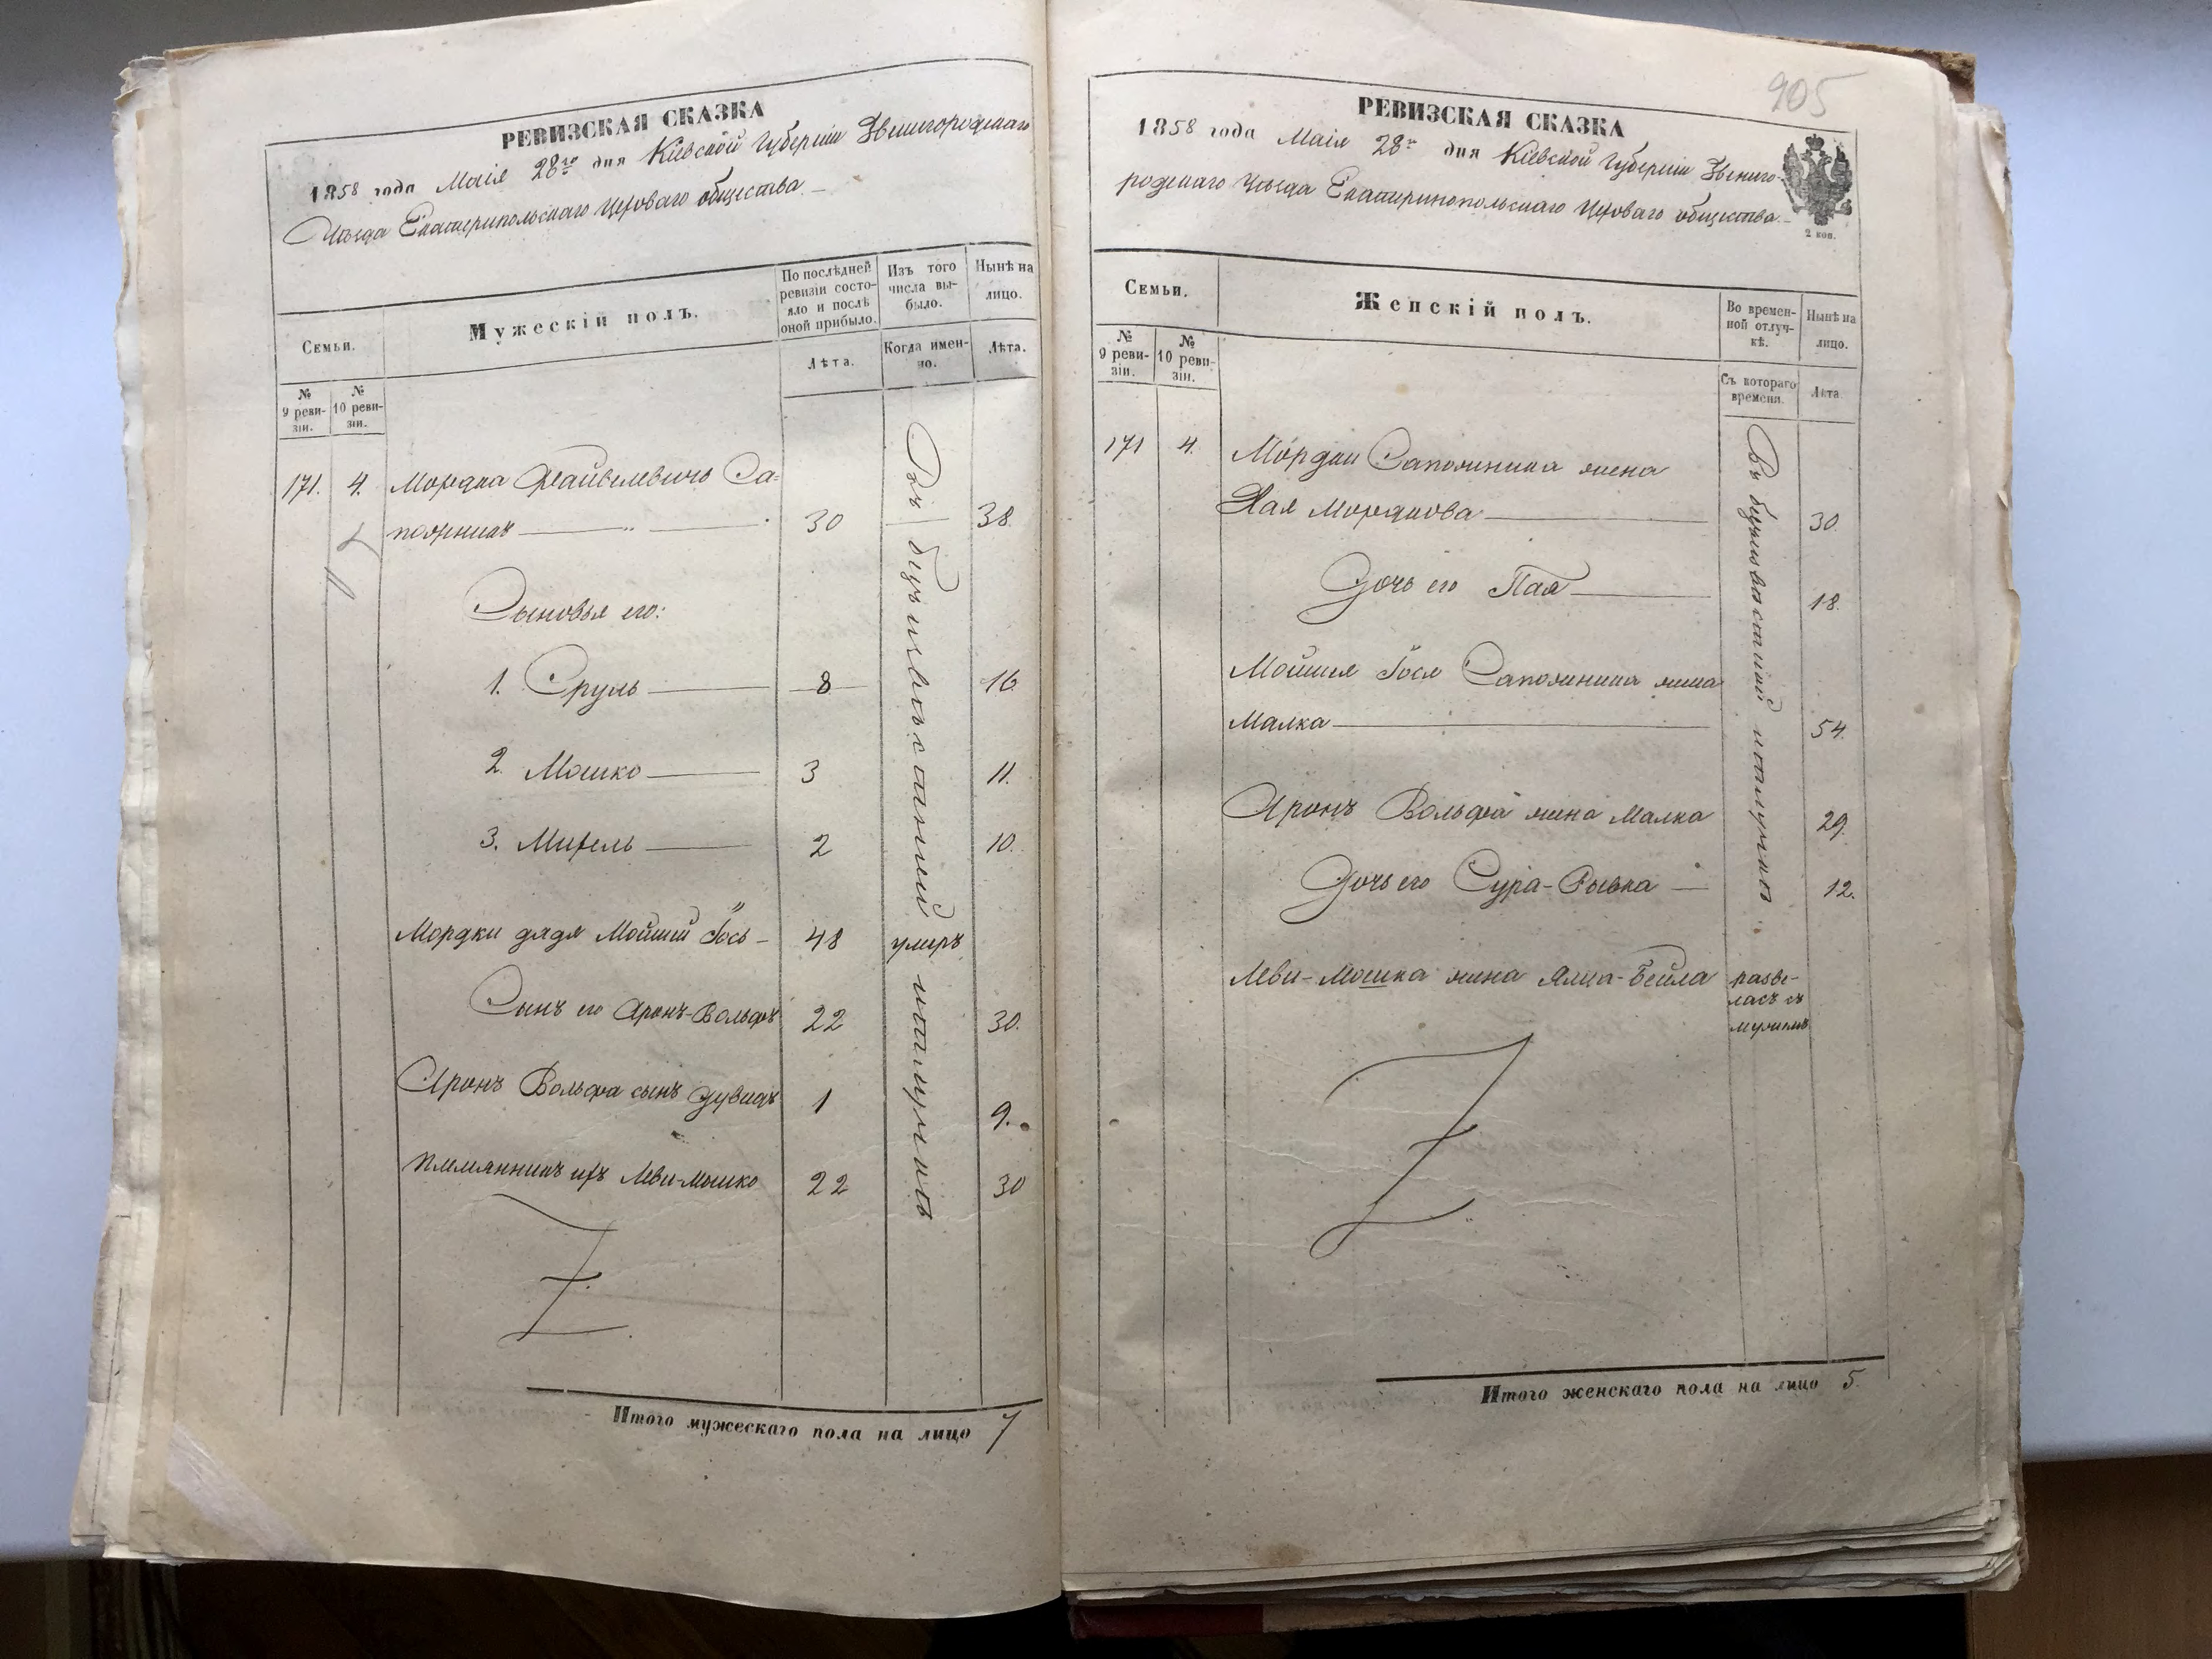 РЕВИЗСКАЯ СКАЗКА
1858 года Маія 28го дня Кіевской Губерніи Звенигородскаго
Уѣзда Екатеринопольскаго Цеховаго общества
Семьи.
Мужескій полъ.
По послѣдней
ревизіи состо-
яло и послѣ
оной прибыло.
Изъ того
числа вы-
было.
Нынѣ на
лицо.
№
9 реви-
зіи.
№
10 реви-
зіи.
Лѣта.
Когда имен-
но.
Лѣта.
171. 4. Мордка Файвелевичъ Са-
пожникъ 30 38.
Сыновья его:
1. Сруль 8 16
2. Мошко 3 11.
3. Михель 2 10.
Мордки дядя Мойший Гось 48 умеръ
Сынъ его Аронъ-Вольфъ 22 30.
Аронъ Вольфа сынъ Дувидъ 1 9.
племянникъ ихъ Леви-Мошко 22 30
Итого мужескаго пола на лицо 7
905
РЕВИЗСКАЯ СКАЗКА
1858 года Маія 28го дня Кіевской Губерніи Звениго-
родскаго Уѣзда Екатеринопольскаго Цеховаго общества
2 коп.
Семьи.
Женскій полъ.
Во времен-
ной отлуч-
кѣ.
Нынѣ на
лицо.
№
9 реви-
зіи.
№
10 реви-
зіи.
Съ котораго
времени.
Лѣта.
171 4. Мордки Сапожника жена
Хая Мордкова 30.
Дочь его Пая 18.
Мойшія Гося Сапожника жена
Малка 54.
Аронъ Вольфа жена Малка 29.
Дочь его Сура-Рывка 12.
Леви-Мошка жена разве-
лась съ
мужемъ
Итого женскаго пола на лицо 5.